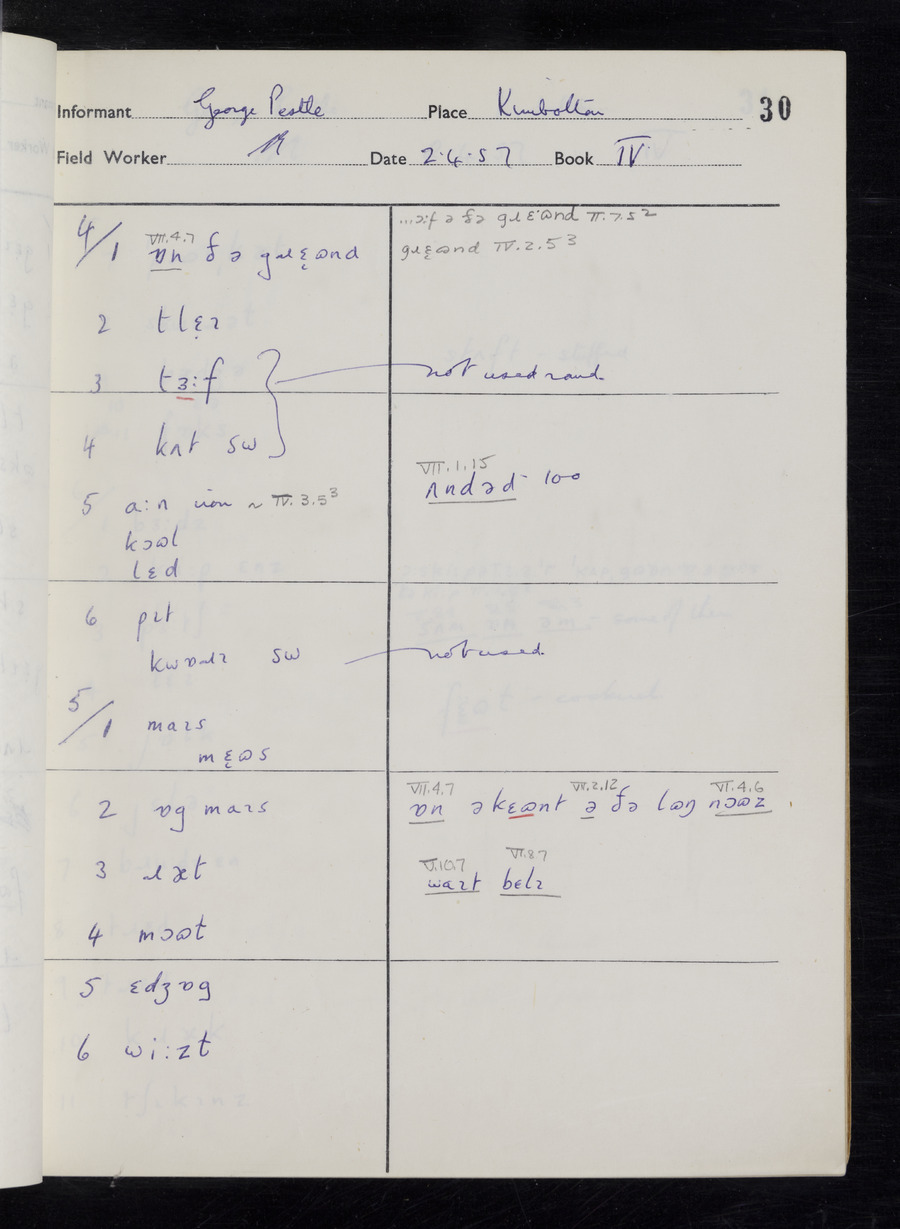 Informant George Pestle Place Kimbolton 30
Field Worker Date 2.4.57 Book IV
4/1 VII.4.7 ɒn ðə gɹɛ̨ɷnd
...ɔ:f ə ðə gɹɛɷnd II.7.5²
gɹɛ̨ɷnd IV.2.5³
2 tlɛ̨ɪ
3 tɜ:f
not used round
4 kʌt sw
VII.1.15
ʌndəd 100
5 a:n iron ~ IV.3.5³
kɔɷl
lɛd
6 pɪt
kwɒɹɪ sw
not used
5/1 maɪs
mɛ̨ɷs
2 ɒg maɪs
VII.4.7 IV.2.12 VI.4.6
ɒn əkɛɷnt ə ðə lɒŋ nɔɷz
3 ɹæt
V.10.7 VI.8.7
waɪt bɛlɪ
4 mɔɷt
5 ɛdʒɒg
6 wi:zt